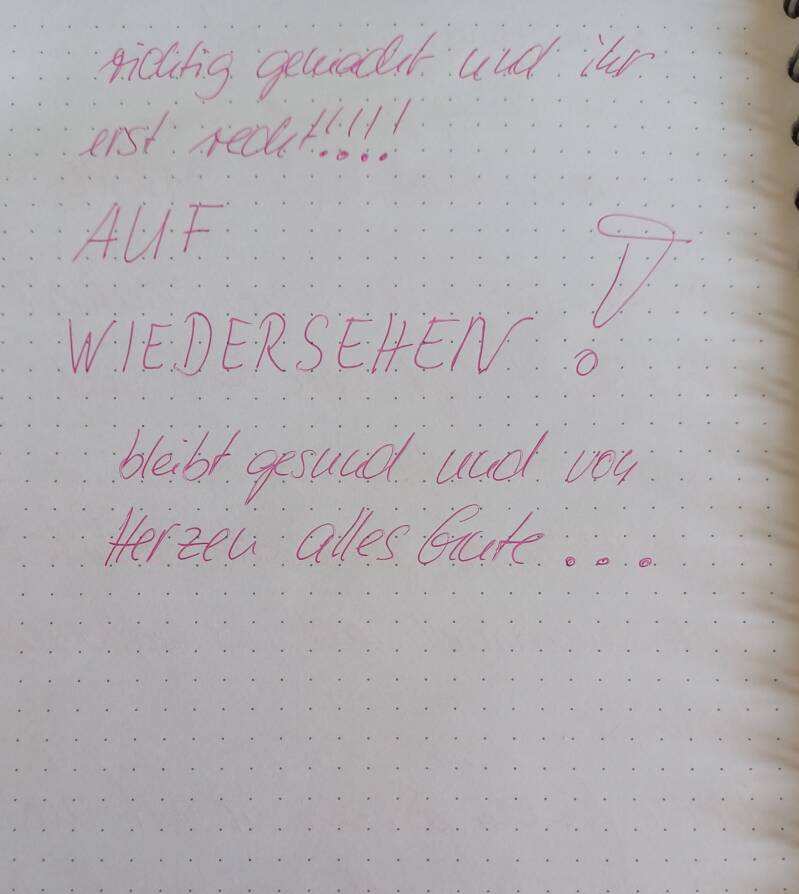 richtig gemacht und ihr
erst recht!!!!
AUF
WIEDERSEHEN !
bleibt gesund und von
Herzen alles Gute....